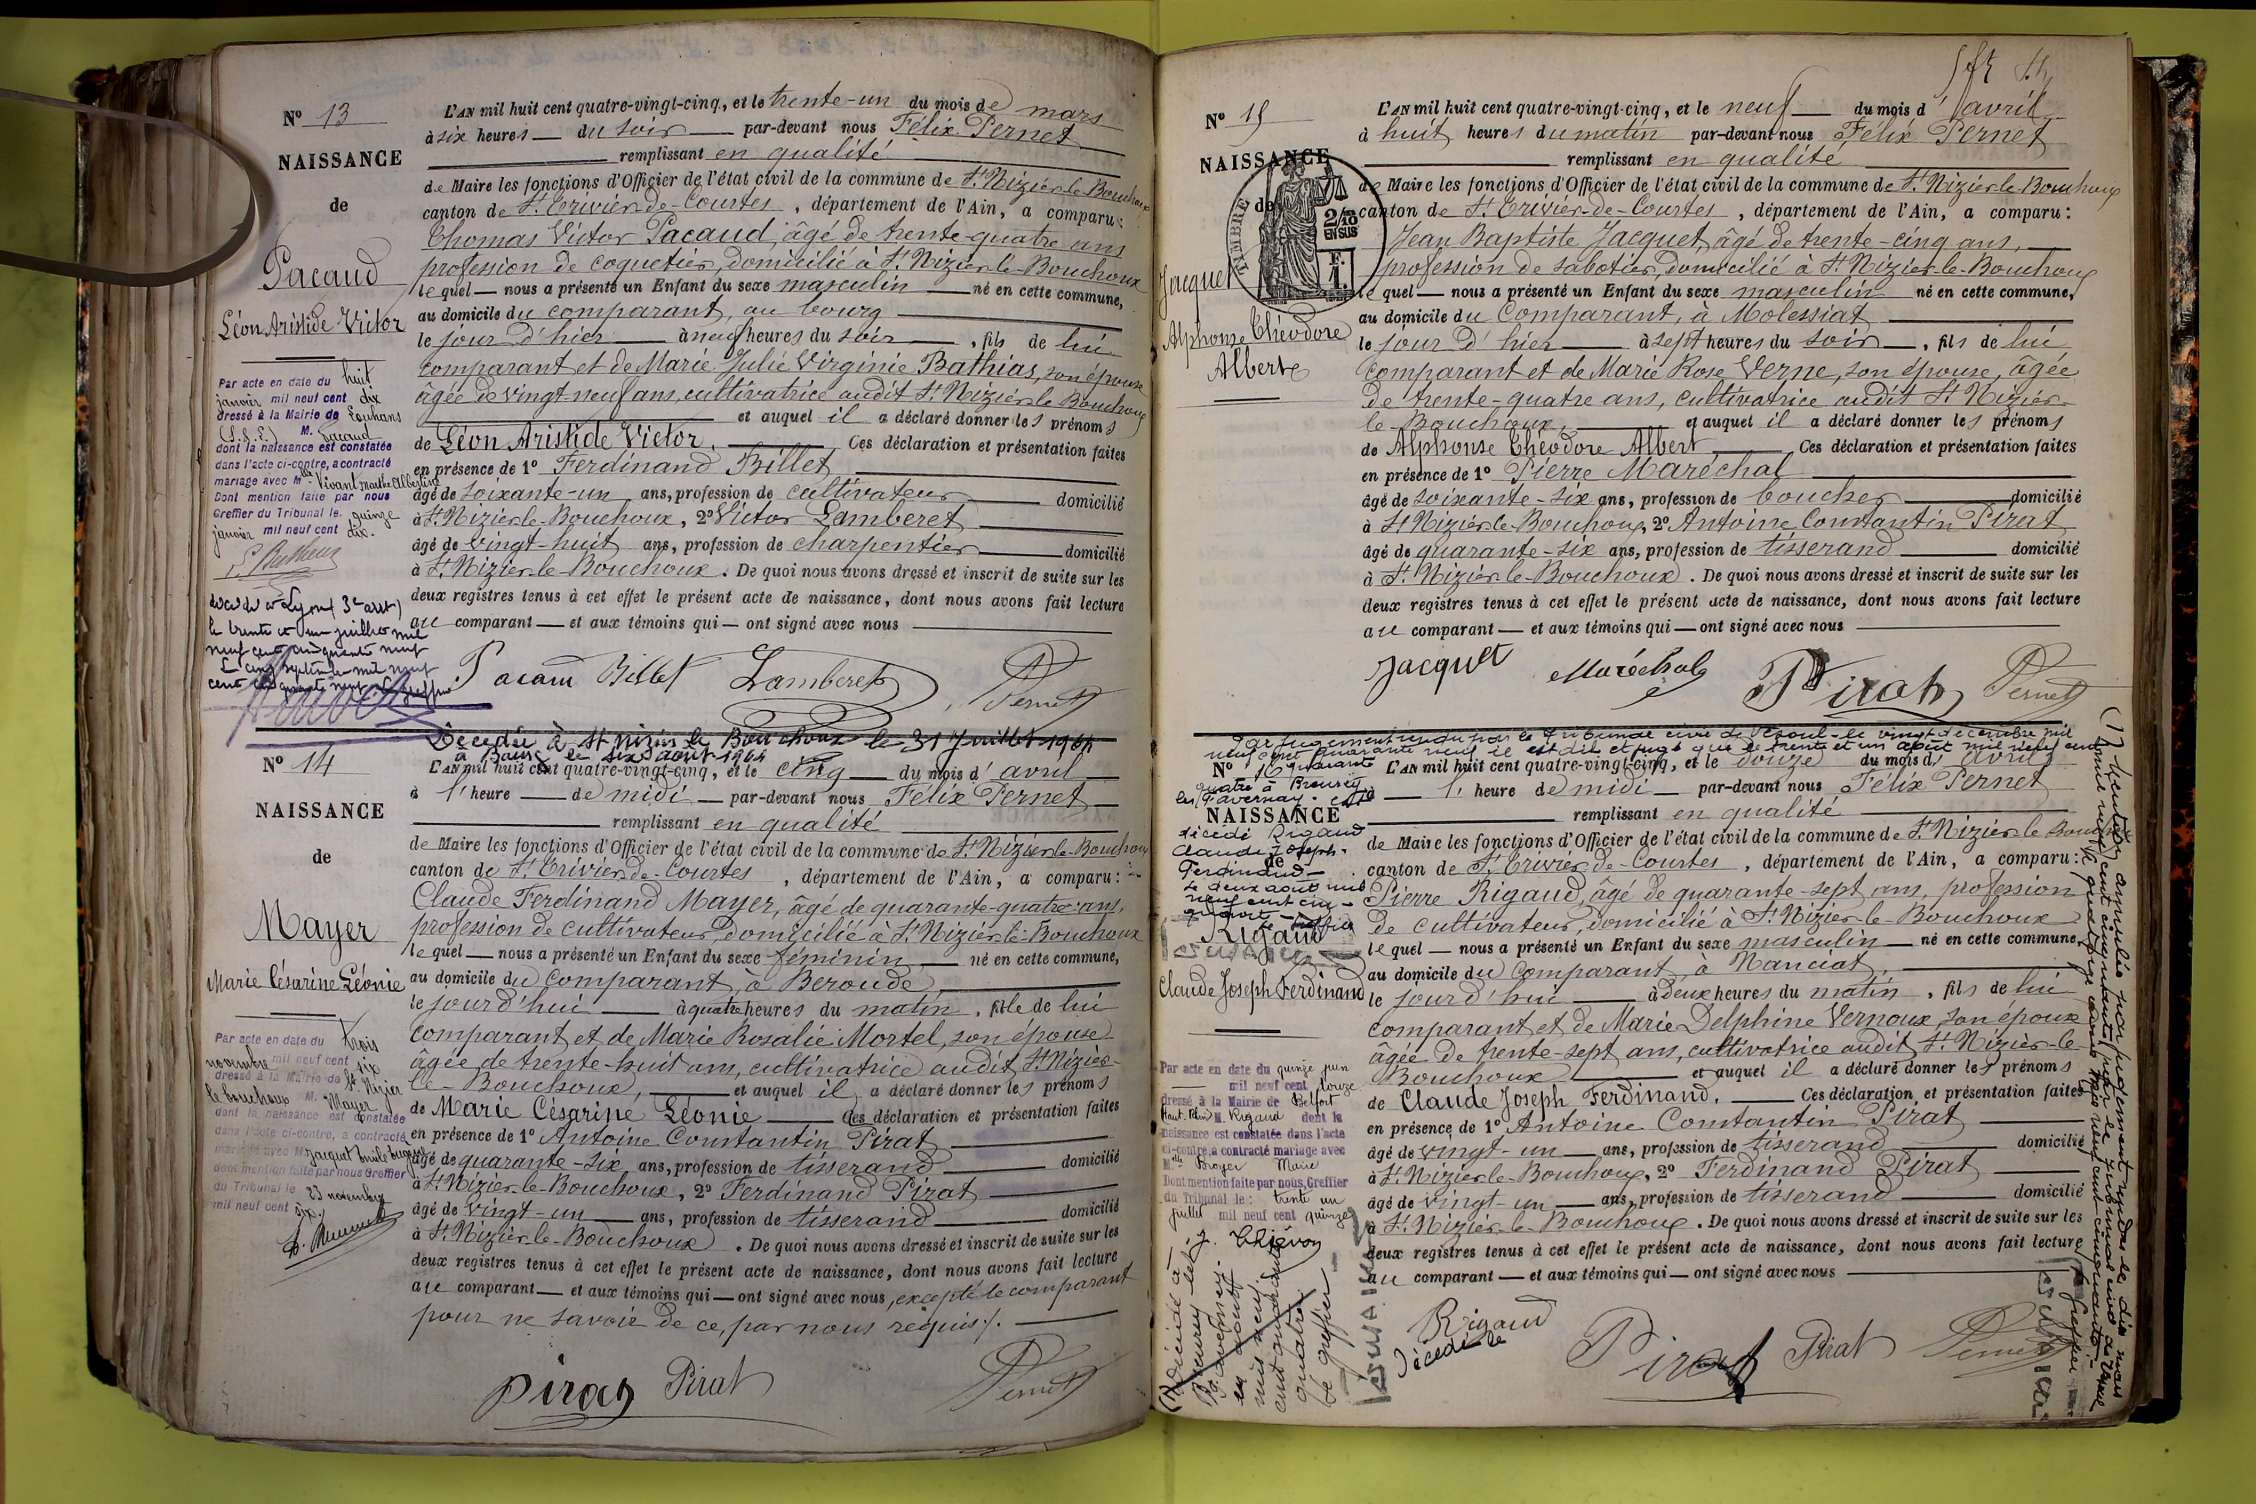 Nº 13
NAISSANCE
de
Pacaud
Léon Aristide Victor
Par acte en date du huit
janvier mil neuf cent dix
dressé à la Mairie de Louhans
(S.&L.) M. Pacaud
dont la naissance est constatée
dans l'acte ci-contre, a contracté
mariage avec Mlle Vivant Marthe Albertine
Dont mention faite par nous
Greffier du Tribunal le quinze
janvier mil neuf cent dix.
décédé à Lyon (3e arrt)
le trente et un juillet mil
neuf cent cinquante neuf
Le cinq septembre mil neuf
cent cinquante neuf Le Greffier
L'AN mil huit cent quatre-vingt-cinq, et le trente-un du mois de mars
à six heures du soir par-devant nous Félix Pernet
remplissant en qualité
de Maire les fonctions d'Officier de l'état civil de la commune de St Nizier-le-Bouchoux
canton de St Trivier-de-Courtes, département de l'Ain, a comparu:
Thomas Victor Pacaud, âgé de trente-quatre ans
profession de coquetier, domicilié à St Nizier-le-Bouchoux
lequel nous a présenté un Enfant du sexe masculin né en cette commune,
au domicile du comparant, au bourg
le jour d'hier à neuf heures du soir, fils de lui
comparant et de Marie Julie Virginie Bathias, son épouse
âgée de vingt-neuf ans, cultivatrice audit St Nizier-le-Bouchoux
et auquel il a déclaré donner les prénoms
de Léon Aristide Victor. Ces déclaration et présentation faites
en présence de 1º Ferdinand Billet
âgé de soixante-un ans, profession de cultivateur domicilié
à St Nizier-le-Bouchoux, 2º Victor Lamberet
âgé de vingt-huit ans, profession de charpentier domicilié
à St Nizier-le-Bouchoux. De quoi nous avons dressé et inscrit de suite sur les
deux registres tenus à cet effet le présent acte de naissance, dont nous avons fait lecture
au comparant et aux témoins qui ont signé avec nous
Pacaud Billet Lamberet Pernet
Décédée à St Nizier le Bouchoux le 31 Juillet 1964
à Bourg le six août 1964
Nº 14
NAISSANCE
de
Mayer
Marie Césarine Léonie
Par acte en date du trois
novembre mil neuf cent six
dressé à la Mairie de St Nizier
le bouchoux M. Mayer
dont la naissance est constatée
dans l'acte ci-contre, a contracté
mariage avec M. Jacquet Emile Eugène
dont mention faite par nous Greffier
du Tribunal le 23 novembre
mil neuf cent six.
L'AN mil huit cent quatre-vingt-cinq, et le cinq du mois d'avril
à l'heure de midi par-devant nous Félix Pernet
remplissant en qualité
de Maire les fonctions d'Officier de l'état civil de la commune de St Nizier-le-Bouchoux
canton de St Trivier-de-Courtes, département de l'Ain, a comparu:
Claude Ferdinand Mayer, âgé de quarante-quatre ans,
profession de cultivateur, domicilié à St Nizier-le-Bouchoux
lequel nous a présenté un Enfant du sexe féminin né en cette commune,
au domicile du comparant, à Beroude,
le jour d'hui à quatre heures du matin, fille de lui
comparant et de Marie Rosalie Mortel, son épouse
âgée de trente-huit ans, cultivatrice audit St Nizier-
le-Bouchoux, et auquel il a déclaré donner les prénoms
de Marie Césarine Léonie Ces déclaration et présentation faites
en présence de 1º Antoine Constantin Pirat
âgé de quarante-six ans, profession de tisserand domicilié
à St Nizier-le-Bouchoux, 2º Ferdinand Pirat
âgé de vingt-un ans, profession de tisserand domicilié
à St Nizier-le-Bouchoux. De quoi nous avons dressé et inscrit de suite sur les
deux registres tenus à cet effet le présent acte de naissance, dont nous avons fait lecture
au comparant et aux témoins qui ont signé avec nous, excepté le comparant
pour ne savoir de ce, par nous requis./.
Pirat Pirat Pernet
Nº 15
NAISSANCE
de
TIMBRE
2/10 EN SUS
F. 1.
Jacquet
Alphonse Théodore
Albert
L'AN mil huit cent quatre-vingt-cinq, et le neuf du mois d'avril
à huit heures du matin par-devant nous Félix Pernet
remplissant en qualité
de Maire les fonctions d'Officier de l'état civil de la commune de St Nizier-le-Bouchoux
canton de St Trivier-de-Courtes, département de l'Ain, a comparu:
Jean Baptiste Jacquet, âgé de trente-cinq ans,
profession de sabotier, domicilié à St Nizier-le-Bouchoux
lequel nous a présenté un Enfant du sexe masculin né en cette commune,
au domicile du Comparant, à Molessiat
le jour d'hier à sept heures du soir, fils de lui
comparant et de Marie Rose Verne, son épouse, âgée
de trente-quatre ans, cultivatrice audit St Nizier-
le-Bouchoux, et auquel il a déclaré donner les prénoms
de Alphonse Théodore Albert Ces déclaration et présentation faites
en présence de 1º Pierre Maréchal
âgé de soixante-six ans, profession de boucher domicilié
à St Nizier-le-Bouchoux, 2º Antoine Constantin Pirat
âgé de quarante-six ans, profession de tisserand domicilié
à St Nizier-le-Bouchoux. De quoi nous avons dressé et inscrit de suite sur les
deux registres tenus à cet effet le présent acte de naissance, dont nous avons fait lecture
au comparant et aux témoins qui ont signé avec nous
Jacquet Maréchal Pirat Pernet
Par jugement rendu par le Tribunal civil de Vesoul le vingt décembre mil
neuf cent quarante neuf il est dit et jugé que le trente et un août mil neuf cent
quarante
quatre à Breurey
les Faverney est
décédé Rigaud
Claude Joseph
Ferdinand
Le deux août mil
neuf cent cin-
quante le greffier
Nº 16
NAISSANCE
de
Rigaud
Claude Joseph Ferdinand
Par acte en date du quinze juin
mil neuf cent douze
dressé à la Mairie de Belfort
Haut Rhin M. Rigaud dont la
naissance est constatée dans l'acte
ci-contre, a contracté mariage avec
Mlle Broyer Marie
Dont mention faite par nous, Greffier
du Tribunal le: trente un
juillet mil neuf cent quinze
(1) décédé à
Breurey-les-
Faverney
en août
mil neuf
cent quarante
quatre
Le greffier
L'AN mil huit cent quatre-vingt-cinq, et le douze du mois d'avril
à l'heure de midi par-devant nous Félix Pernet
remplissant en qualité
de Maire les fonctions d'Officier de l'état civil de la commune de St Nizier-le-Bouchoux
canton de St Trivier-de-Courtes, département de l'Ain, a comparu:
Pierre Rigaud, âgé de quarante-sept ans, profession
de cultivateur, domicilié à St Nizier-le-Bouchoux
lequel nous a présenté un Enfant du sexe masculin né en cette commune
au domicile du comparant, à Nanciat,
le jour d'hui à deux heures du matin, fils de lui
comparant et de Marie Delphine Vernoux, son épouse
âgée de trente-sept ans, cultivatrice audit St Nizier-le-
Bouchoux et auquel il a déclaré donner les prénoms
de Claude Joseph Ferdinand. Ces déclaration et présentation faites
en présence de 1º Antoine Constantin Pirat
âgé de vingt-un ans, profession de tisserand domicilié
à St Nizier-le-Bouchoux, 2º Ferdinand Pirat
âgé de vingt-un ans, profession de tisserand domicilié
à St Nizier-le-Bouchoux. De quoi nous avons dressé et inscrit de suite sur les
deux registres tenus à cet effet le présent acte de naissance, dont nous avons fait lecture
au comparant et aux témoins qui ont signé avec nous
Rigaud Pirat Pirat Pernet
décédé le
(1) Mention annulée par jugement rendu le dix mars
mil neuf cent cinquante par le Tribunal civil de